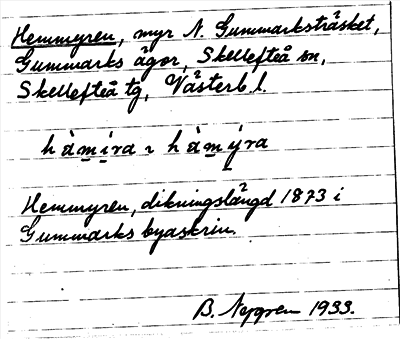 Hemmyren, myr N. Gummarksträsket,
Gummarks ägor, Skellefteå sn,
Skellefteå tg, Västerb. l.
hàmíra ~ hàmýra
Hemmyren, dikningslängd 1873 i
Gummarks byaskrin.
B. Nygren 1933.